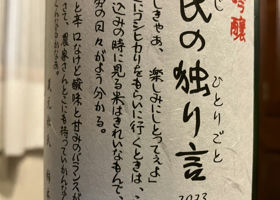 吟醸
じ
民の独り言
ひとりごと
2023
じきゃあ、楽しみにしとってぇよ」
にコシヒカリをもらいに行くときは、こ
込みの時に見る米はきれいなもんで、
労の日々がよう分かる。
と辛口なけど酸味と甘みのバランスが
さて、農家さんとこにも持っていかんと